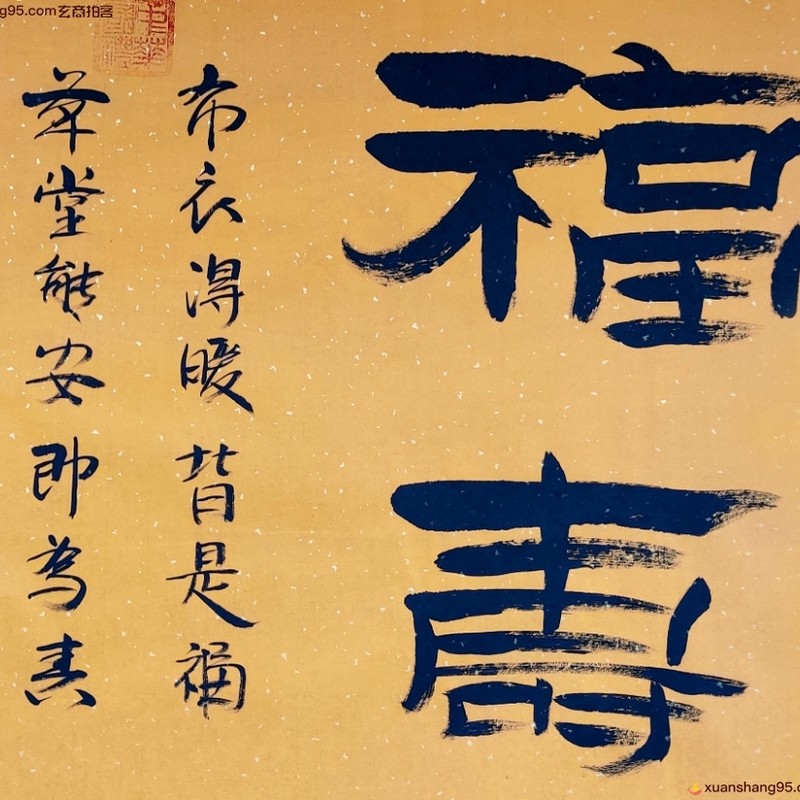 ng95.com玄商拍客
福壽
布衣得暖皆是福
草堂能安即為春
xuanshang95.c